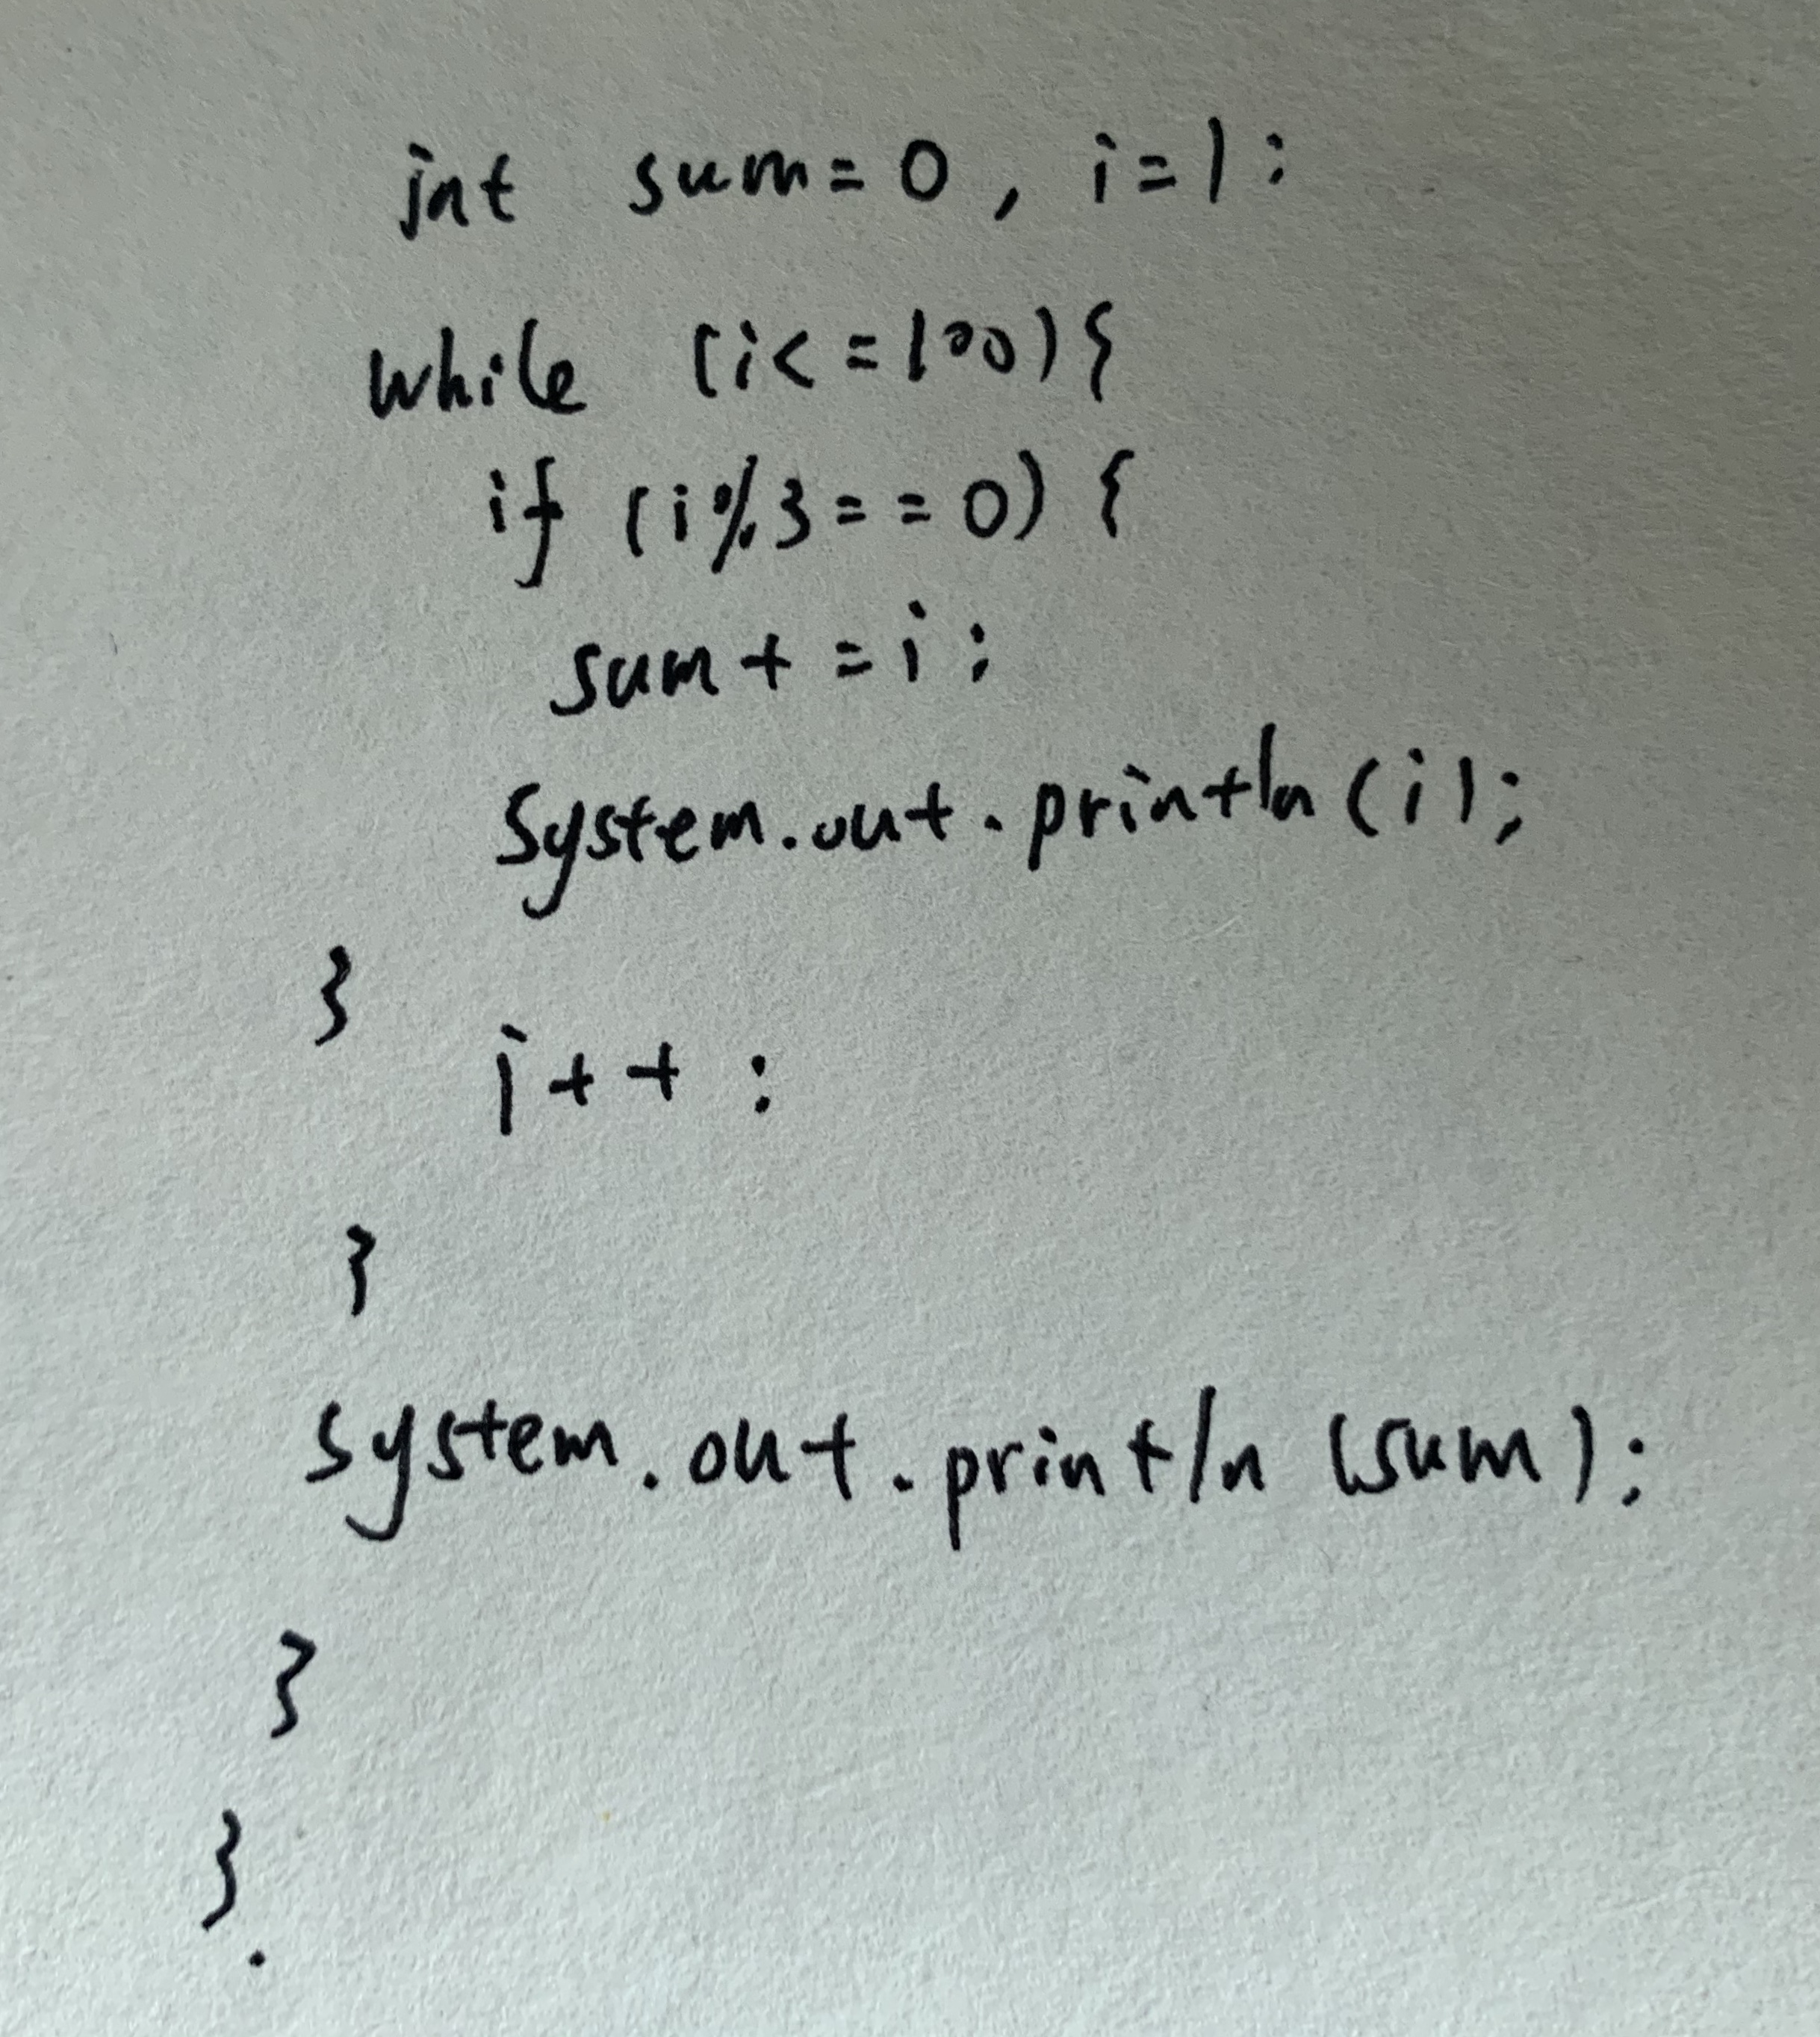 int sum=0, i=1;
while (i<=100){
if (i%3==0) {
sum+=i;
System.out.println(i);
}
i++;
}
System.out.println(sum);
}
}.